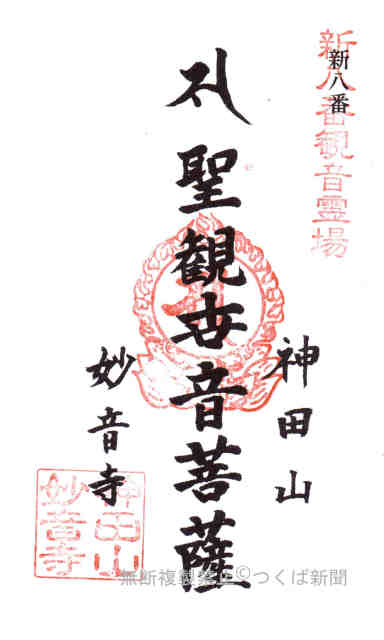 新八番観音霊場
新八番
神田山
聖観世音菩薩
妙音寺
神田山
妙音寺
無断複製禁止©つくば新聞